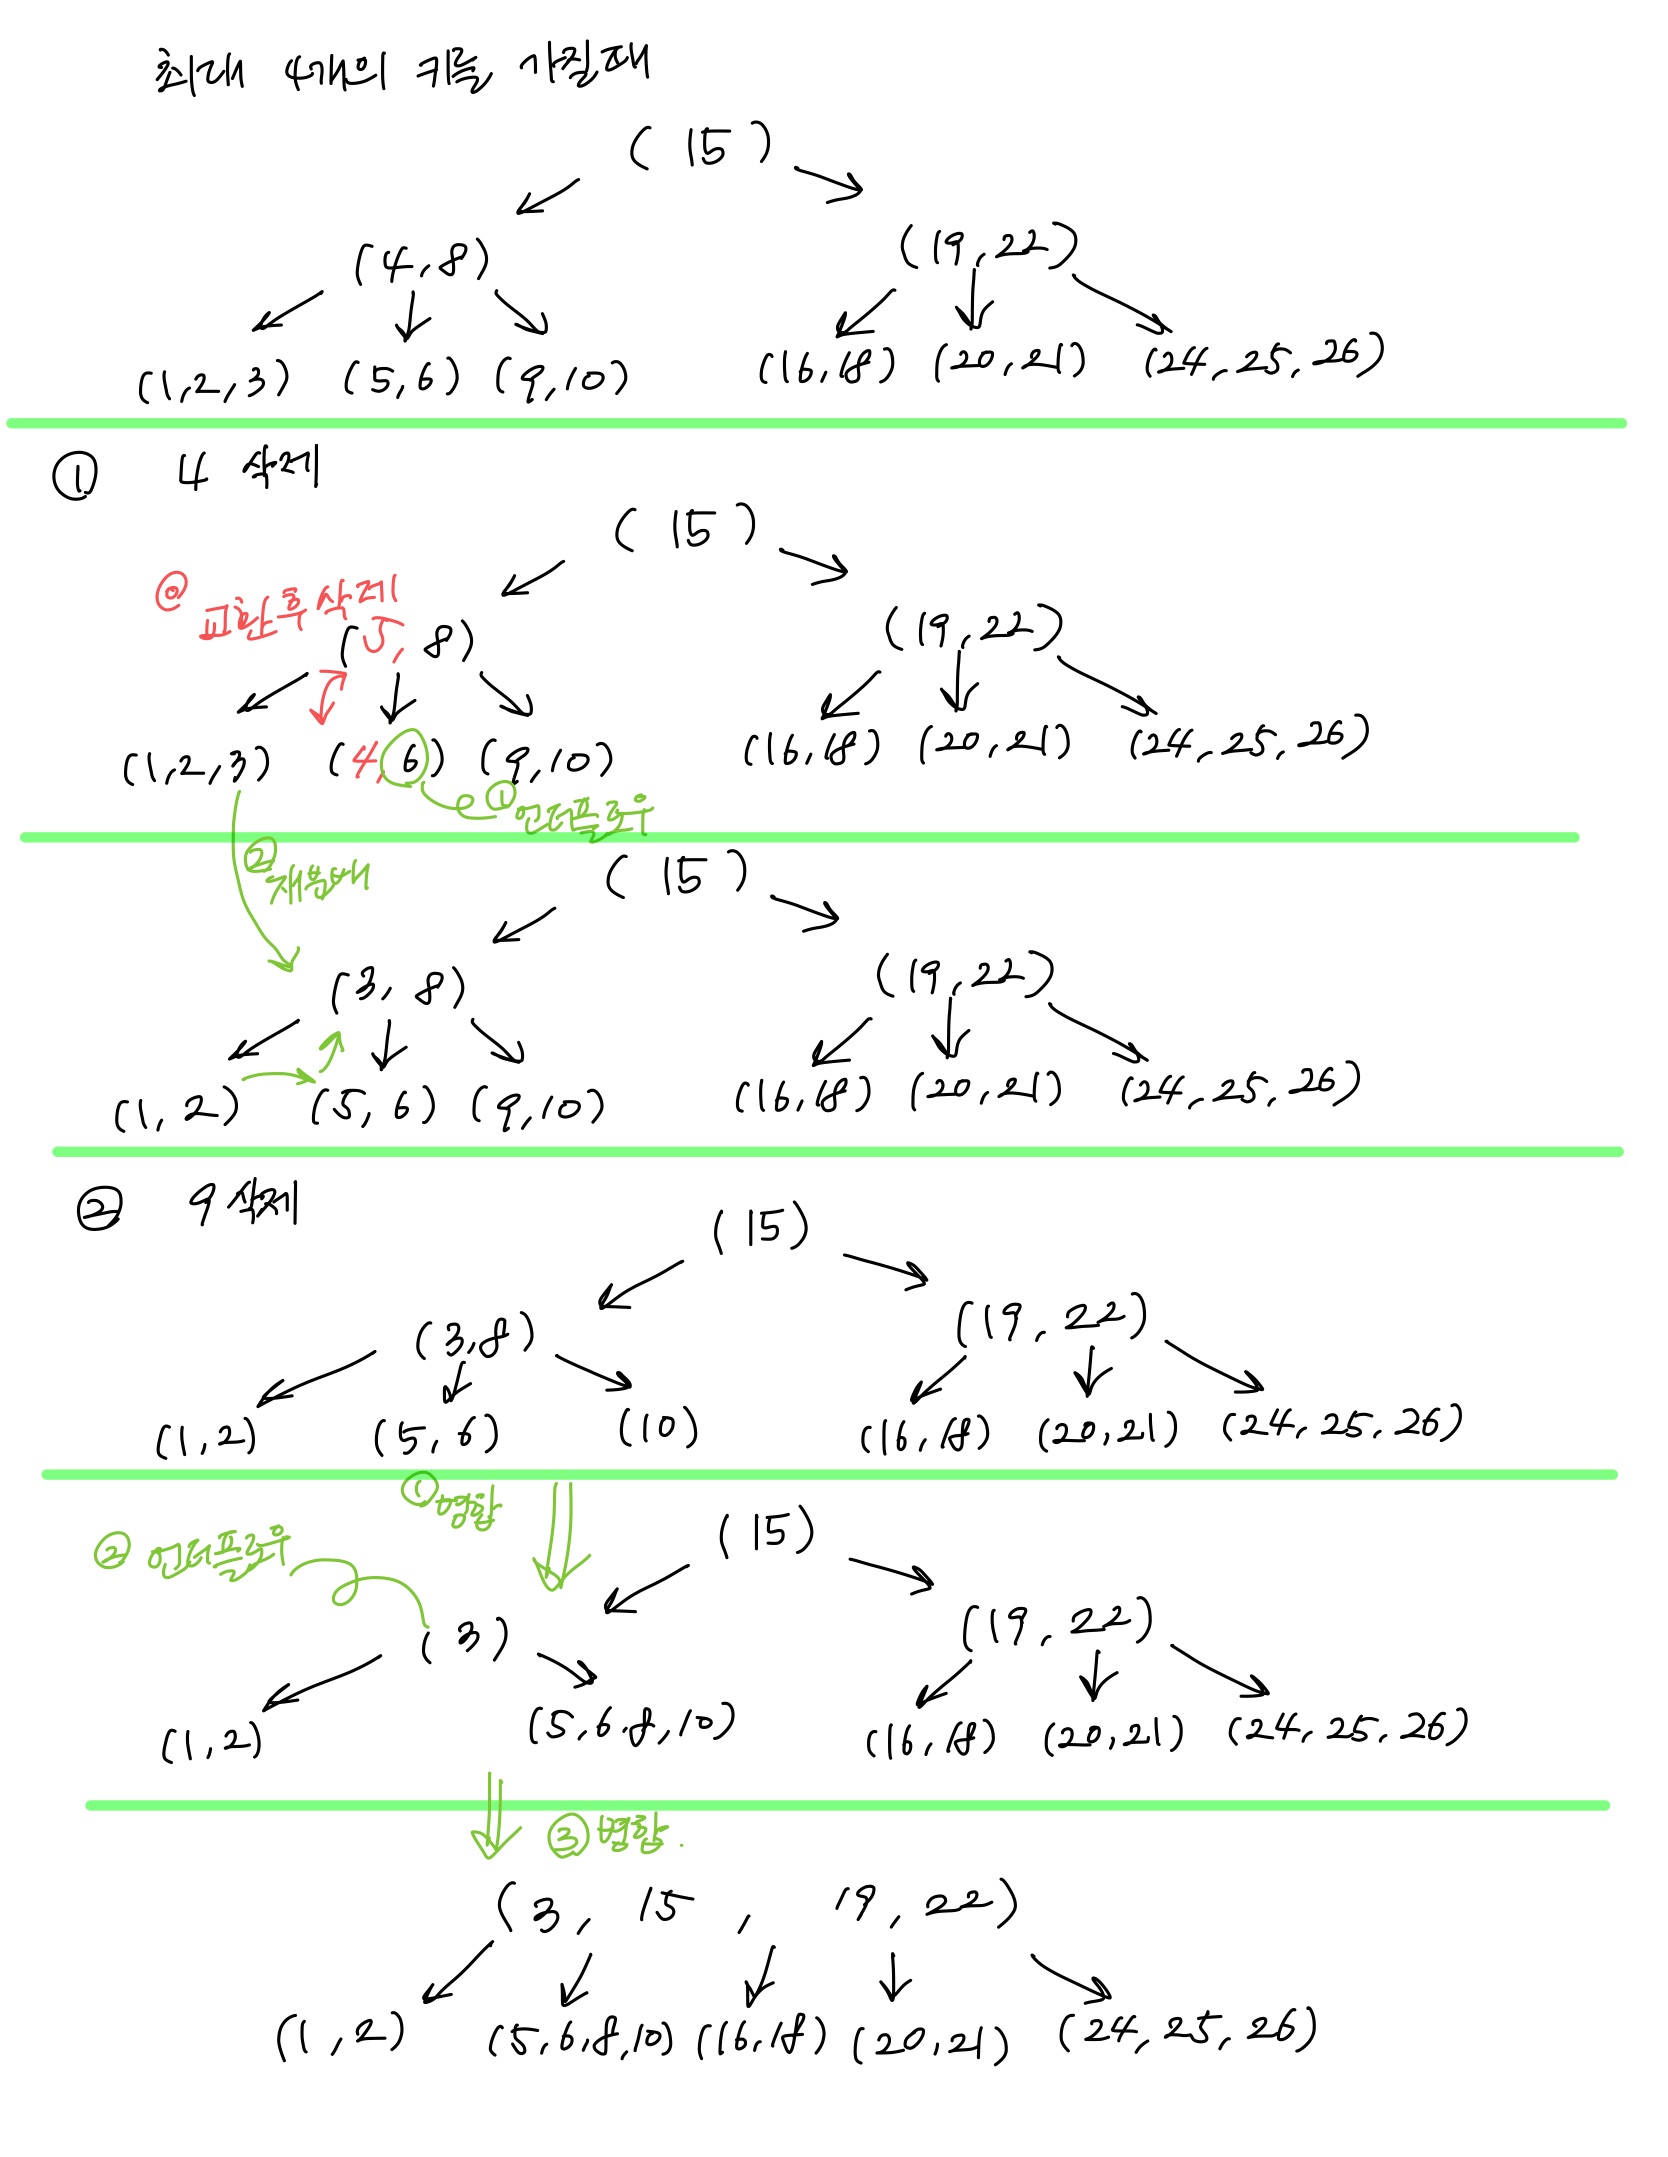 최대 4개의 키를 가질때
( 15 )
(4,8) (19,22)
(1,2,3) (5,6) (9,10) (16,18) (20,21) (24,25,26)
① 4 삭제
( 15 )
⓪ 교환 후 삭제
(5, 8) (19,22)
(1,2,3) (4,6) (9,10) (16,18) (20,21) (24,25,26)
① 언더플로우
② 재분배
( 15 )
(3, 8) (19,22)
(1, 2) (5, 6) (9,10) (16,18) (20,21) (24,25,26)
② 9 삭제
(15)
(3,8) (19, 22)
(1,2) (5, 6) (10) (16,18) (20,21) (24,25,26)
① 병합
② 언더플로우
(15)
(3) (19, 22)
(1,2) (5,6,8,10) (16,18) (20,21) (24,25,26)
③ 병합.
(3, 15, 19, 22)
(1,2) (5,6,8,10) (16,18) (20,21) (24,25,26)